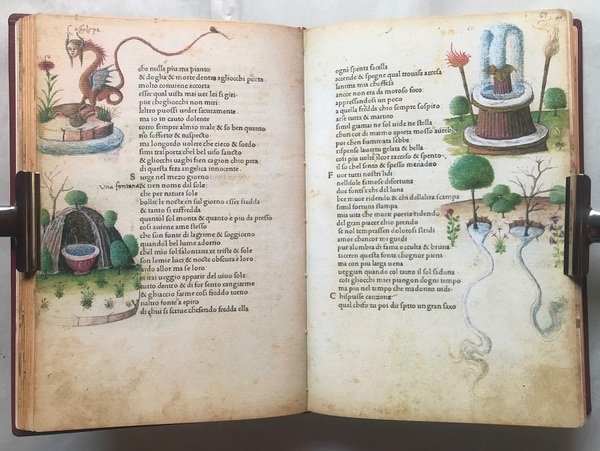 che nulla piu ma piante
& dogha & morte dentro agliocchi porta
molto conuiene accorta
esser qual uista mai uer lei si giri
pur chegliocchi non miri
laltro puossi ueder securamente
ma io in cauto dolente
corro sempre almio male & so ben quanto
no sofferto & naspecto
ma longordo uolere che cieco & sordo
simi trasporta chel bel uiso sancto
& gliocchi uaghi fien cagion chio pera
di questa fera angelica innocente
Surge nel mezo giorno
Una fontana & tien nome dal sole
che per natura sole
bollir le nocti en sul giorno esser fredda
& tanto si raffredda
quantol sol monta & quanto e piu da presso
cosi auiene ame stesso
che son fonte di lagrime & soggiorno
quandol bel lume adorno
chel mio sol salontana et triste & sole
son le mie luci & nocte obscura e loro
ardo allor ma se loro
ei rai ueggio apparir del uiuo sole
tutto dentro & di for sento cangiarme
& ghiaccio farme cosi freddo torno
Vnaltro fonte a epiro
di chui si scriue chesendo fredda ella
ogni spenta facella
accende & spegne qual trouasse accesa
lanima mia choffesa
ancor non era da moroso foco
appressandosi un poco
a quella fredda chio sempre sospiro
arse tutta & martiro
simil giamai ne sol uide ne stella
chun cor di marmo apieta mosso aurebbe
poi chen fiammata sebbe
rispense lauertu gelata & bella
cosi piu uolte ilcor racceso & spento
il so chel sento & spesso menadiro
Fuor tucti nostri lidi
nellisole famose difortuna
due fonti a chi del luna
bee muor ridendo & chi dellaltra scampa
simil fortuna stampa
mia uita che morir poeria ridendo
del gran piacer chio prendo
se nol temprassen dolorosi stridi
amor chancor mi guidi
pur alombra di fama occulta & bruna
tacerem questa fonte chognor piena
ma con piu larga uena
ueggian quando col tauro il sol saduna
cosi gliocchi miei piangon dogni tempo
ma piu nel tempo che madonna uidi
Chi spiasse canzone
quel chifo tu poi dir sotto un gran saxo